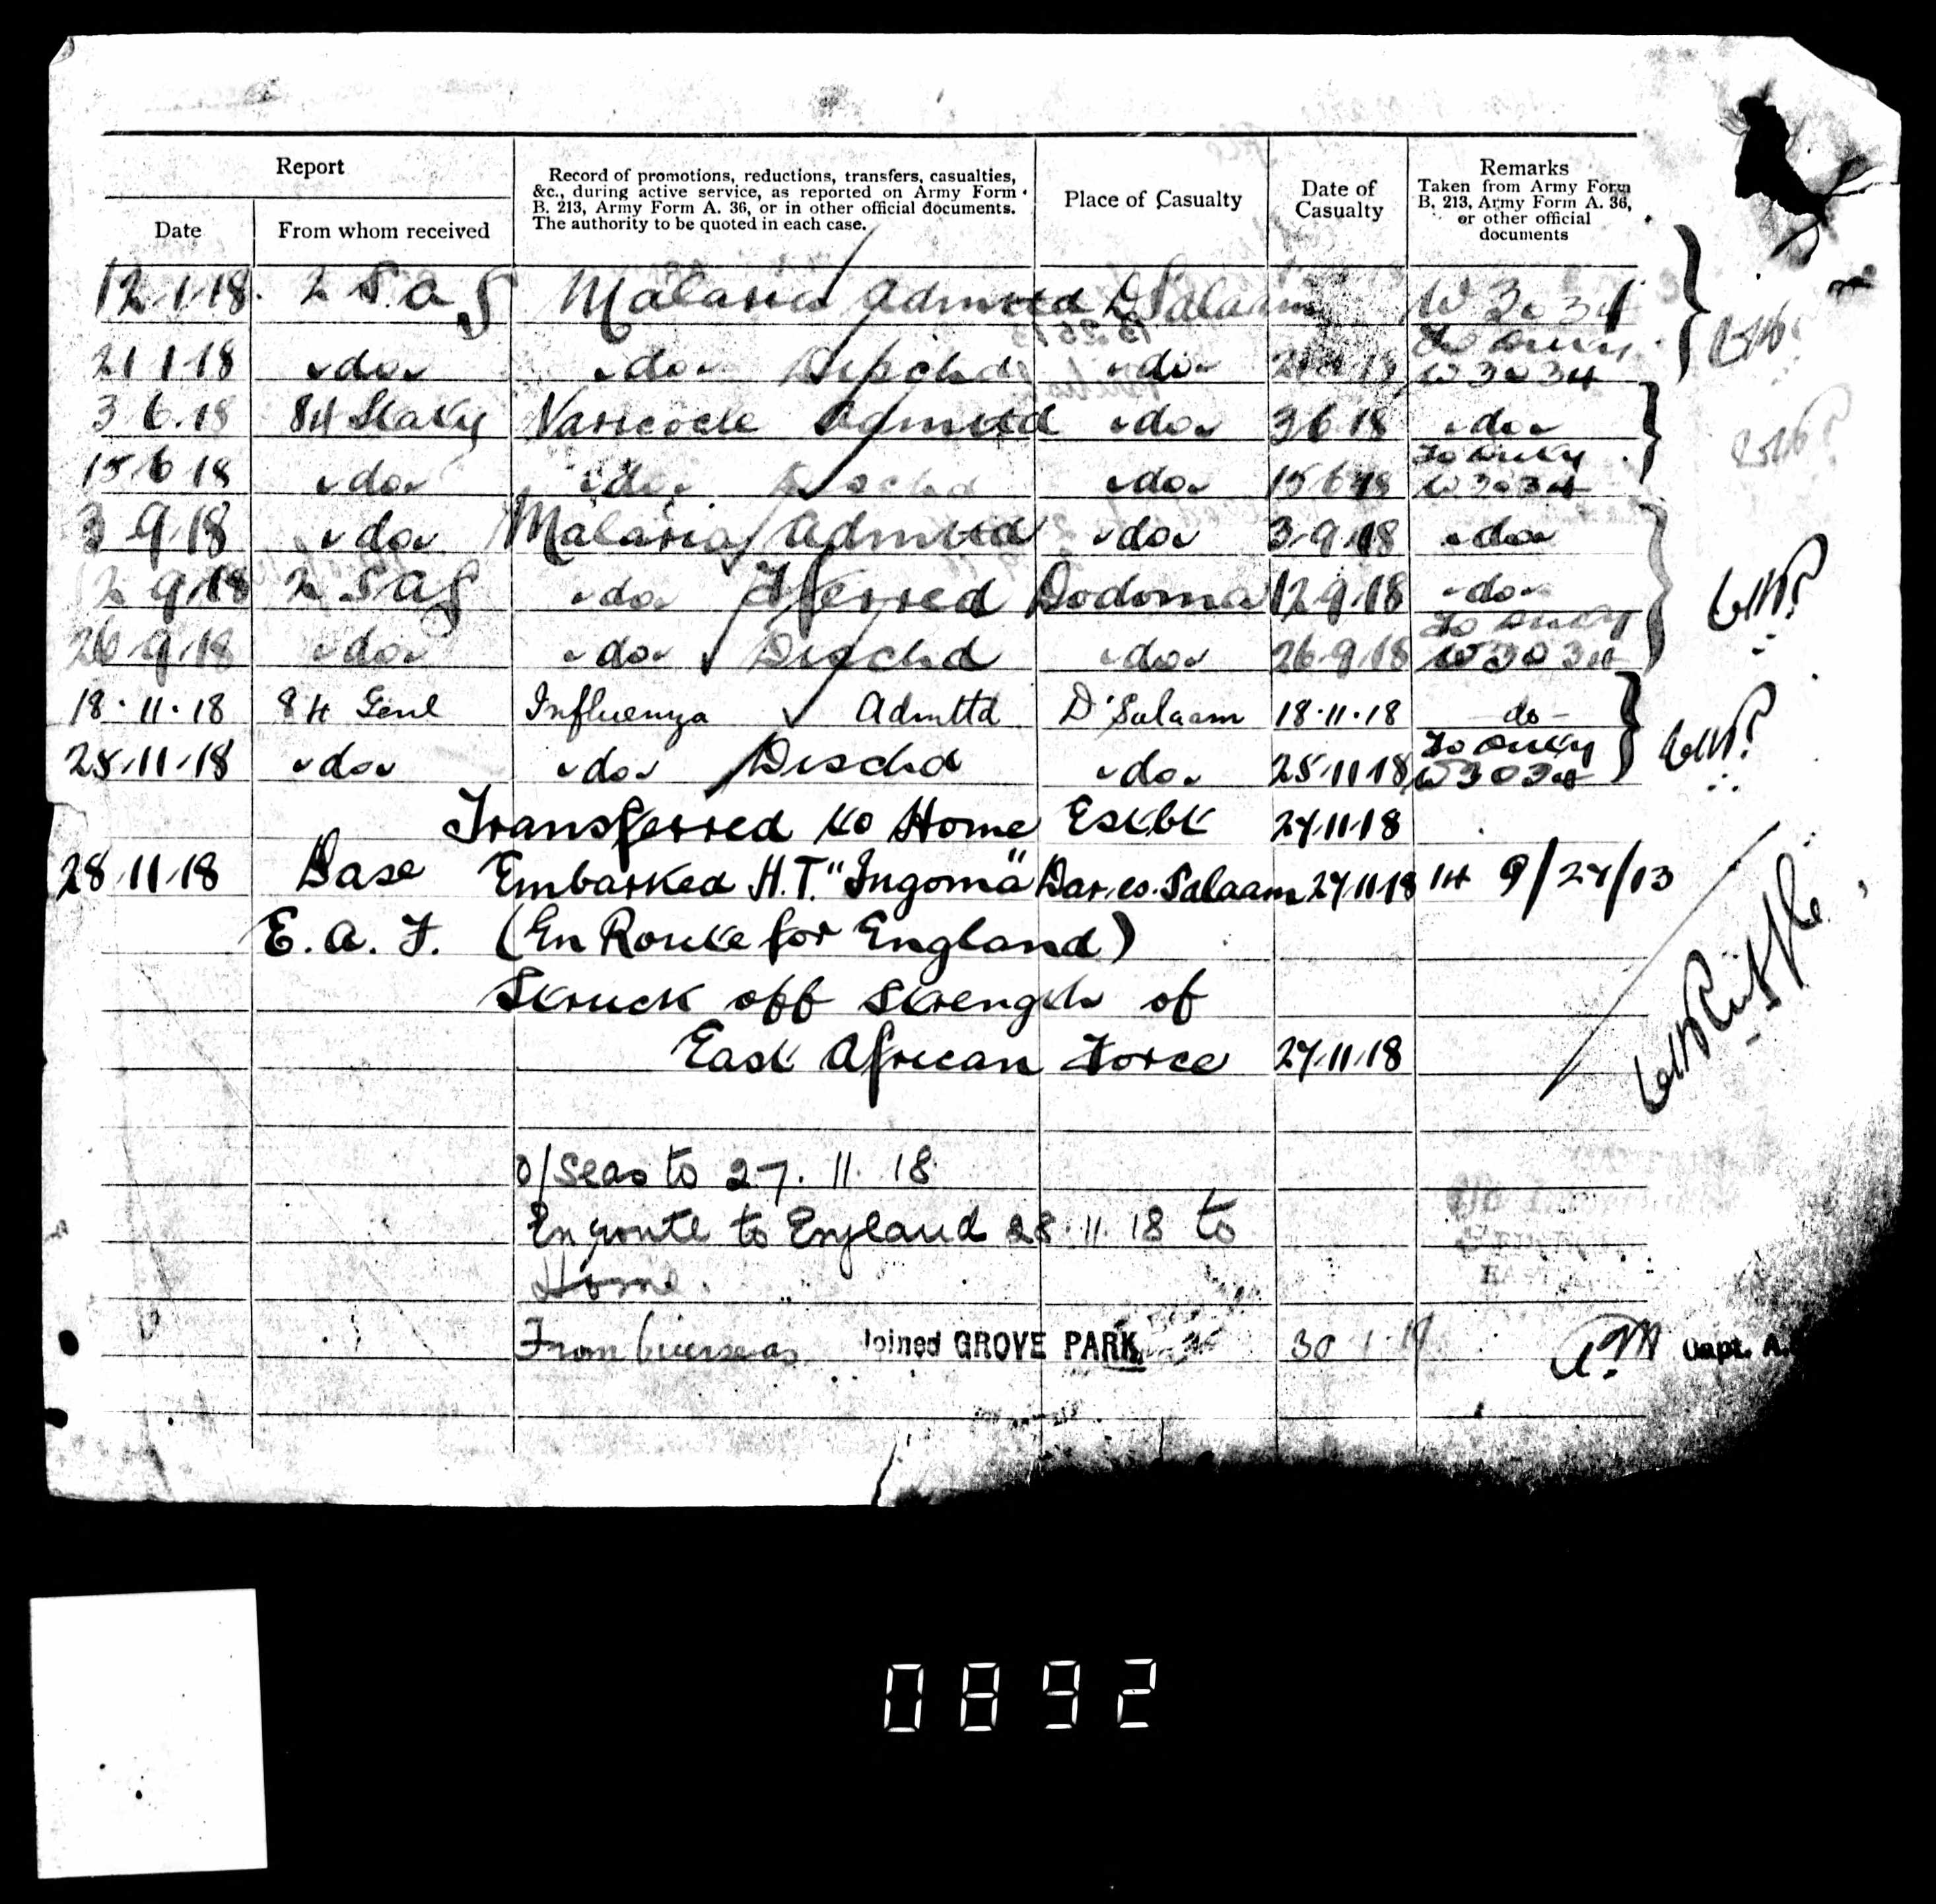 Report
Record of promotions, reductions, transfers, casualties,
&c., during active service, as reported on Army Form
B. 213, Army Form A. 36, or in other official documents.
The authority to be quoted in each case.
Place of Casualty
Date of
Casualty
Remarks
Taken from Army Form
B. 213, Army Form A. 36,
or other official
documents
Date
From whom received
12.1.18. 2 S.A.G Malaria Admitted D'Salaam W3034
21.1.18 do do Dischd do To Duty W3034
3.6.18 84 Staty Varicocele Admitted do 3.6.18 do
15.6.18 do do Dischd do 15.6.18 To Duty W3034
3.9.18 do Malaria Admitted do 3.9.18 do
12.9.18 2 SAG do Tferred Dodoma 12.9.18 do
26.9.18 do do Dischd do 26.9.18 To Duty W3034
18.11.18 84 Genl Influenza Admttd D'Salaam 18.11.18 do
25.11.18 do do Dischd do 25.11.18 To Duty W3034
Transferred to Home Estbt 27.11.18
28.11.18 Base Embarked H.T. "Ingoma" Dar.es.Salaam 27.11.18 9/27/13
E.A.F. (En Route for England)
Struck off Strength of
East African Force 27.11.18
o/seas to 27.11.18
En route to England 28.11.18 to
Home.
From Overseas Joined GROVE PARK 30 1 19 Capt. A.
0892